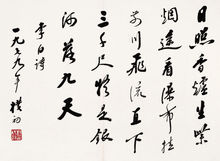 日照香爐生紫
烟遥看瀑布挂
前川飛流直下
三千尺疑是銀
河落九天
李白诗
一九七九年 樸初